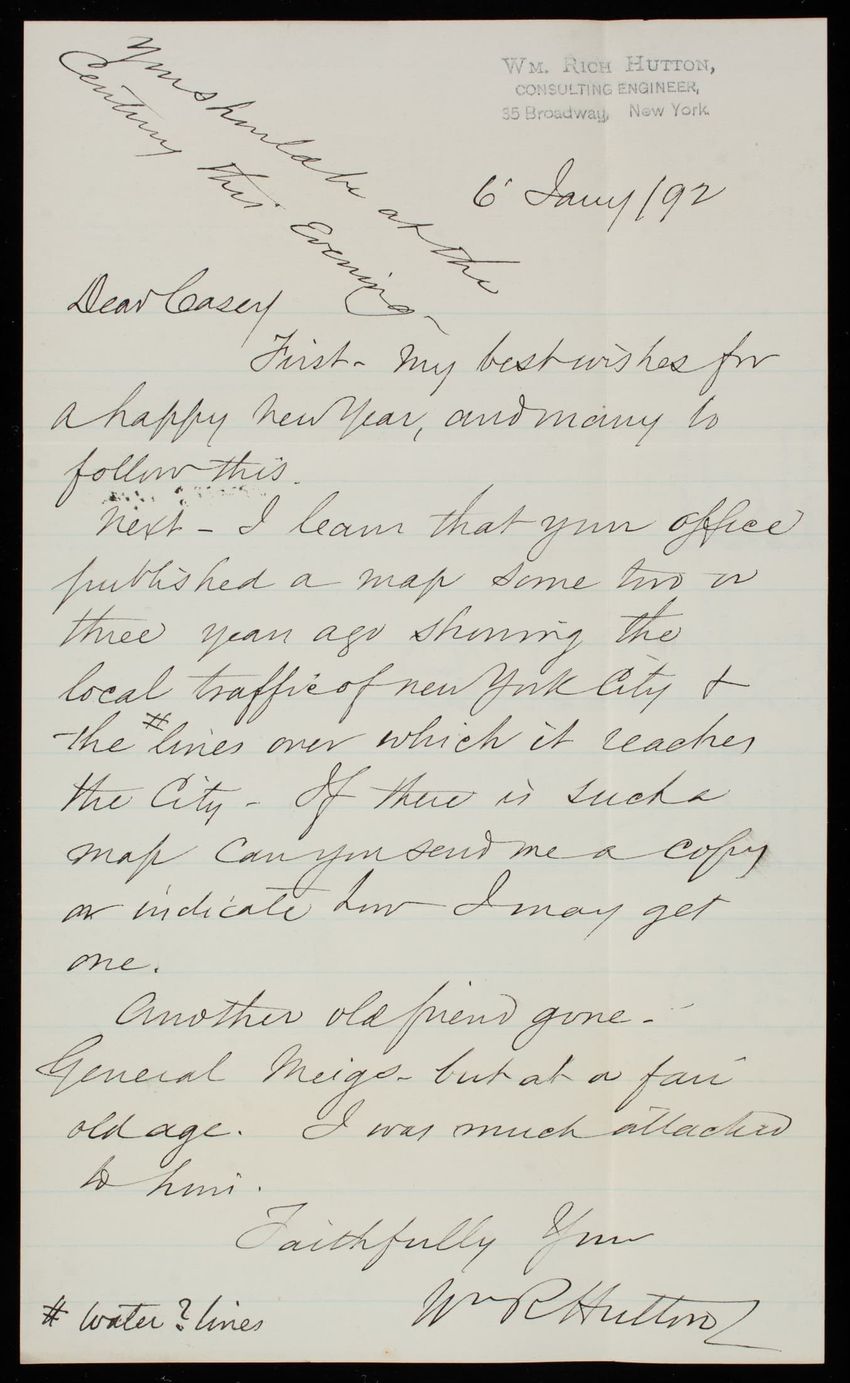 You should be at the
Century this Evening -
WM. RICH HUTTON,
CONSULTING ENGINEER,
35 Broadway, New York.
6 Jany /92
Dear Casey
First - My best wishes for
a happy New Year, and many to
follow this.
Next - I learn that your office
published a map some two or
three year ago showing the
local traffic of New York City &
the # lines over which it reaches
the City - If there is such a
map can you send me a copy
or indicate how I may get
one.
Another old friend gone -
General Meigs - but at a fair
old age. I was much attached
to him.
Faithfully Your
Wm R Hutton
# water? lines